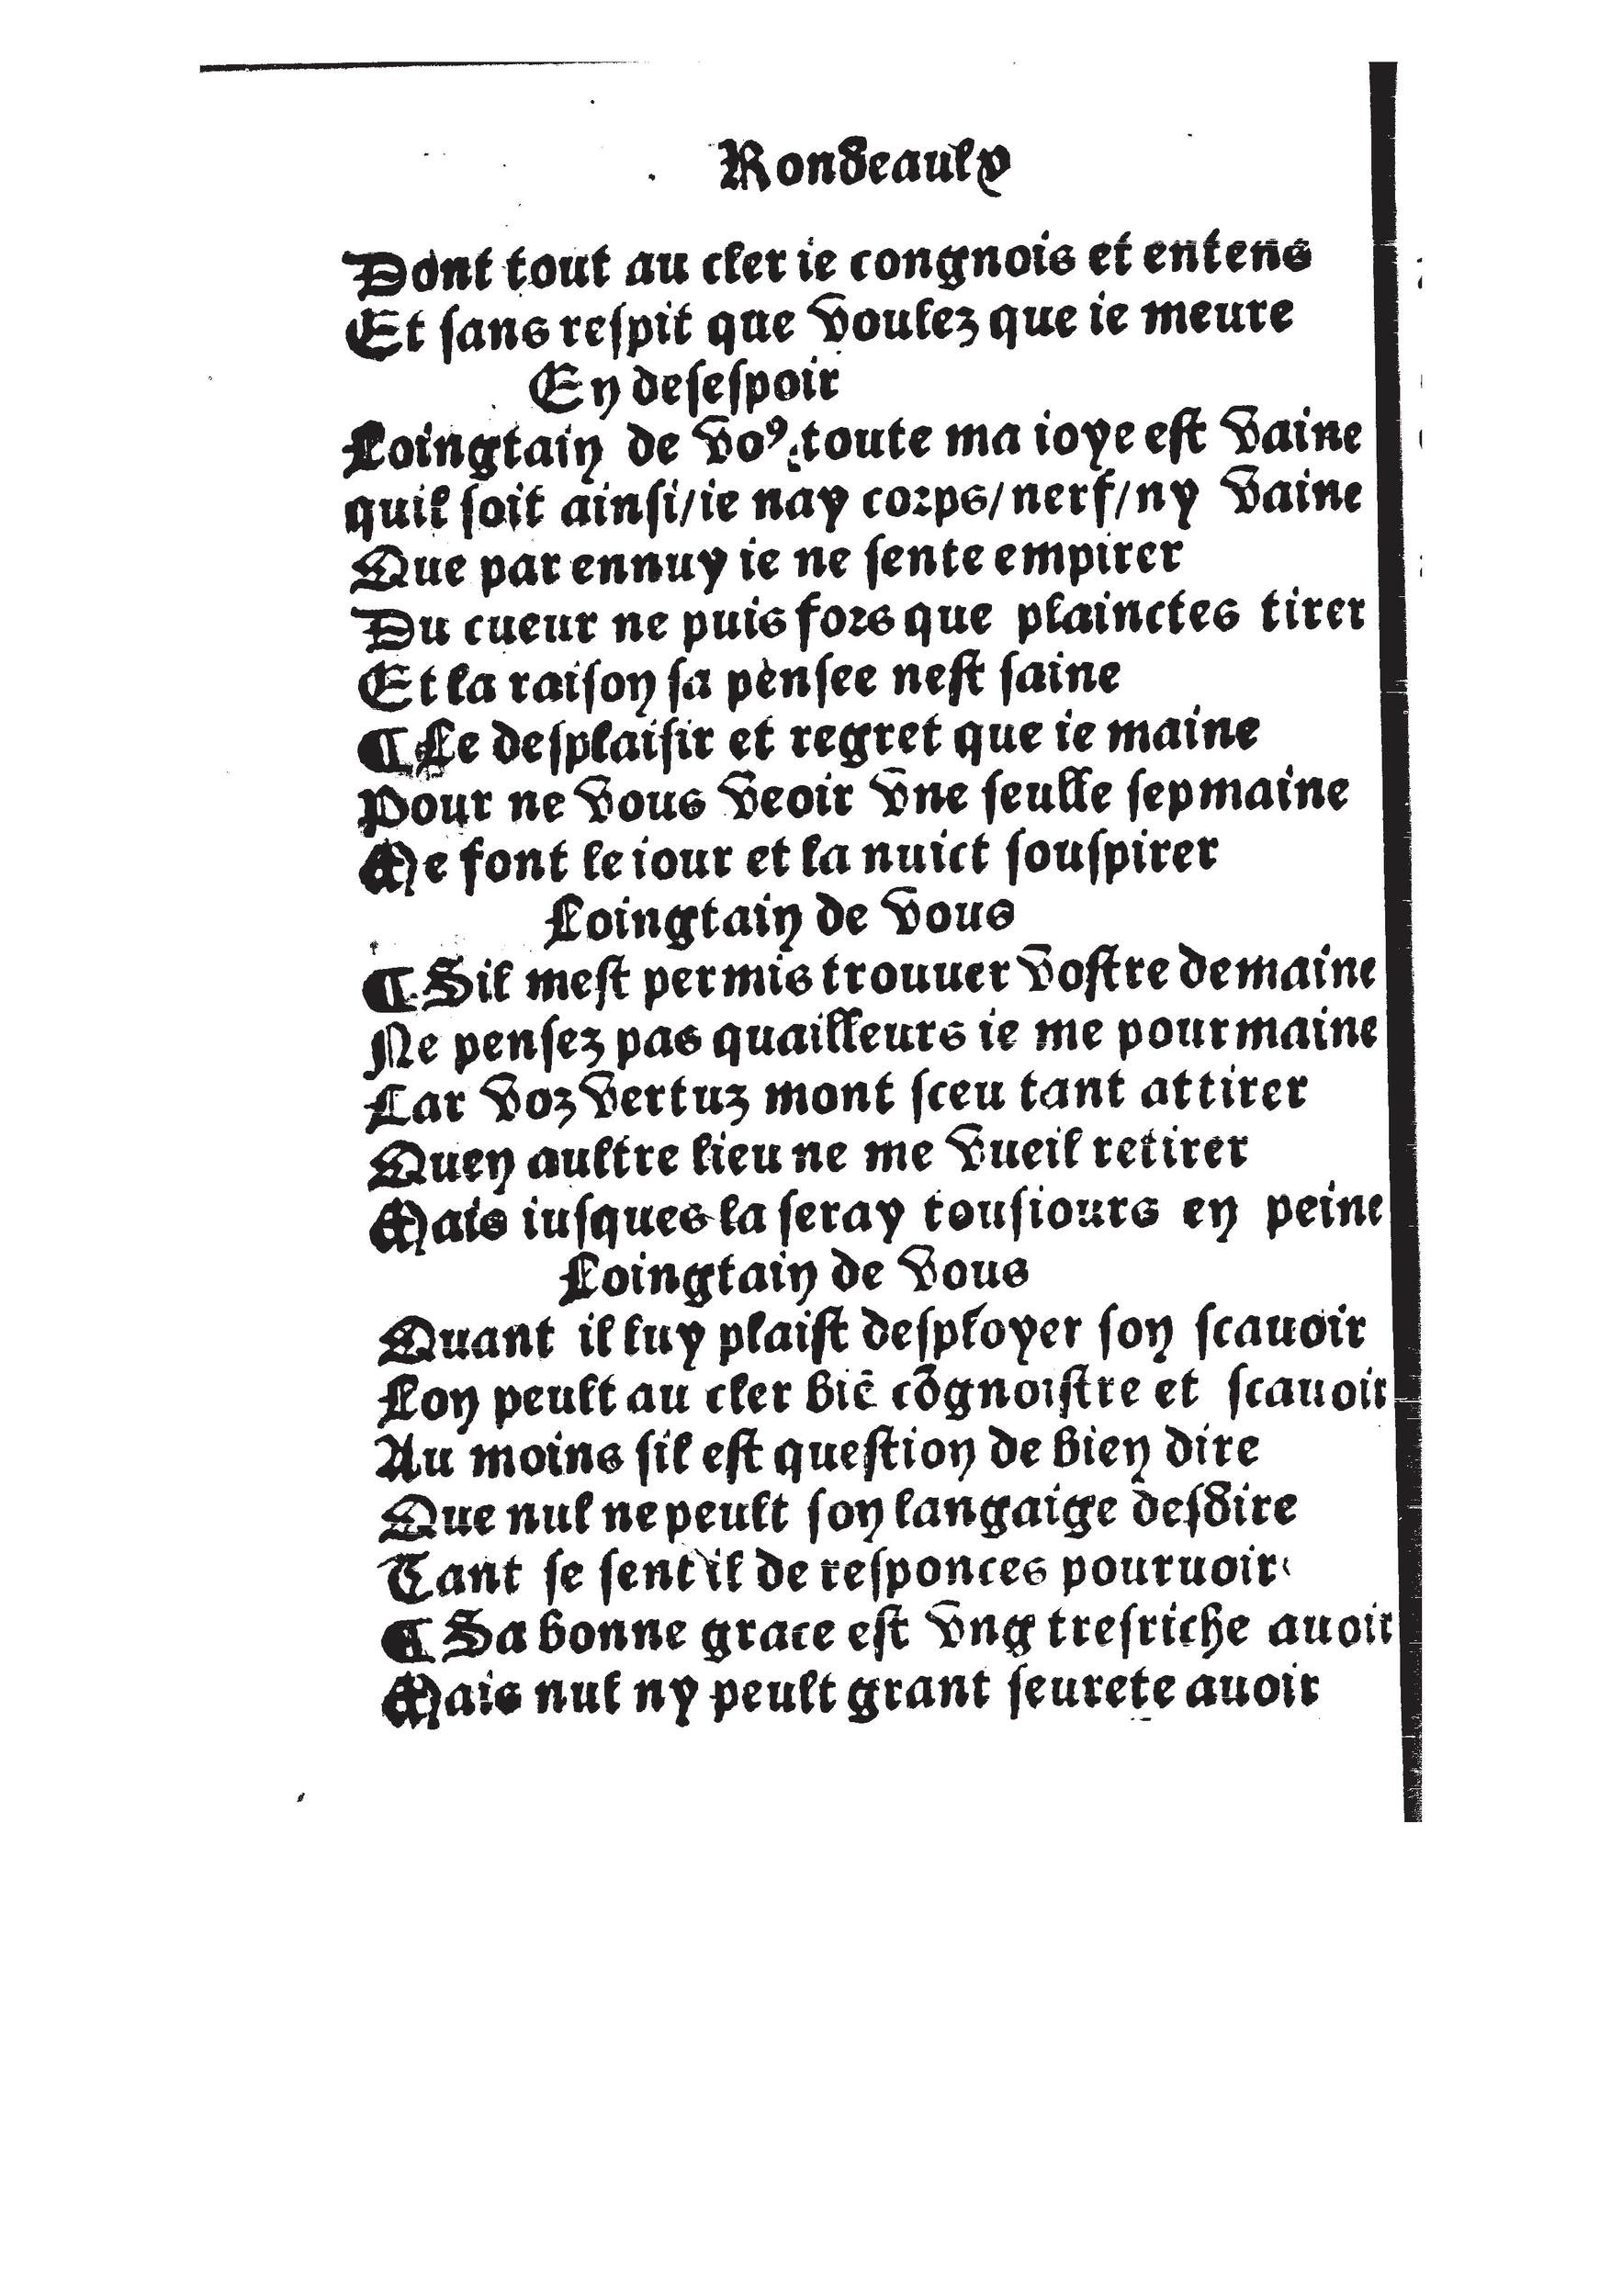 Rondeaulx
Dont tout au cler ie congnois et entens
Et sans respit que voulez que ie meure
En desespoir
Loingtain de voꝰ toute ma ioye est vaine
quil soit ainsi/ie nay corps/nerf/ny vaine
Que par ennuy ie ne sente empirer
Du cueur ne puis fors que plainctes tirer
Et la raison sa pensee nest saine
¶Le desplaisir et regret que ie maine
Pour ne vous veoir vne seulle sepmaine
Me font le iour et la nuict souspirer
Loingtain de vous
¶Sil mest permis trouuer vostre demaine
Ne pensez pas quailleurs ie me pourmaine
Car voz vertuz mont sceu tant attirer
Quen aultre lieu ne me vueil retirer
Mais iusques la seray tousiours en peine
Loingtain de vous
Quant il luy plaist desployer son scauoir
Lon peult au cler biē cōgnoistre et scauoir
Au moins sil est question de bien dire
Que nul ne peult son langaige desdire
Tant se sent il de responces pouruoir
¶Sa bonne grace est vng tresriche auoir
Mais nul ny peult grant seurete auoir